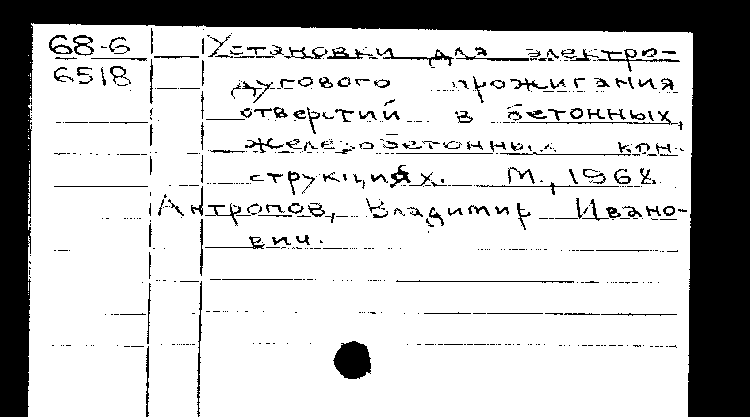 68-6 Установки для электро-
6518 дугового прожигания
отверстий в бетонных,
железобетонных кон-
струкциях. М., 1968
Антропов, Владимир Ивано-
вич.